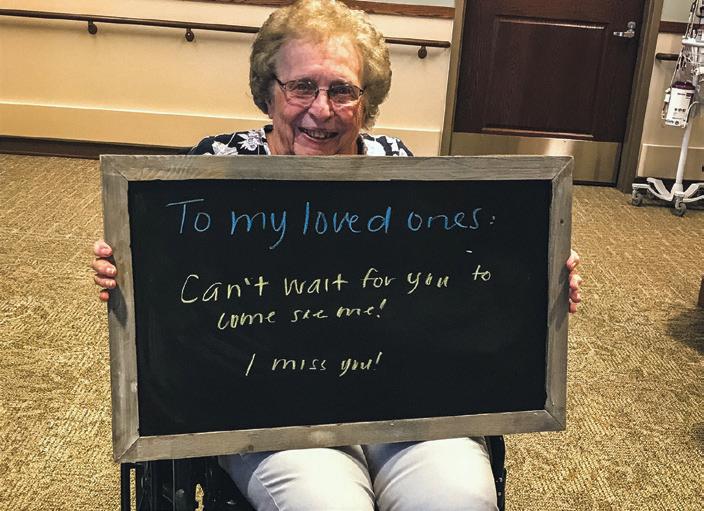 To my loved ones:
Can't wait for you to
come see me!
I miss you!